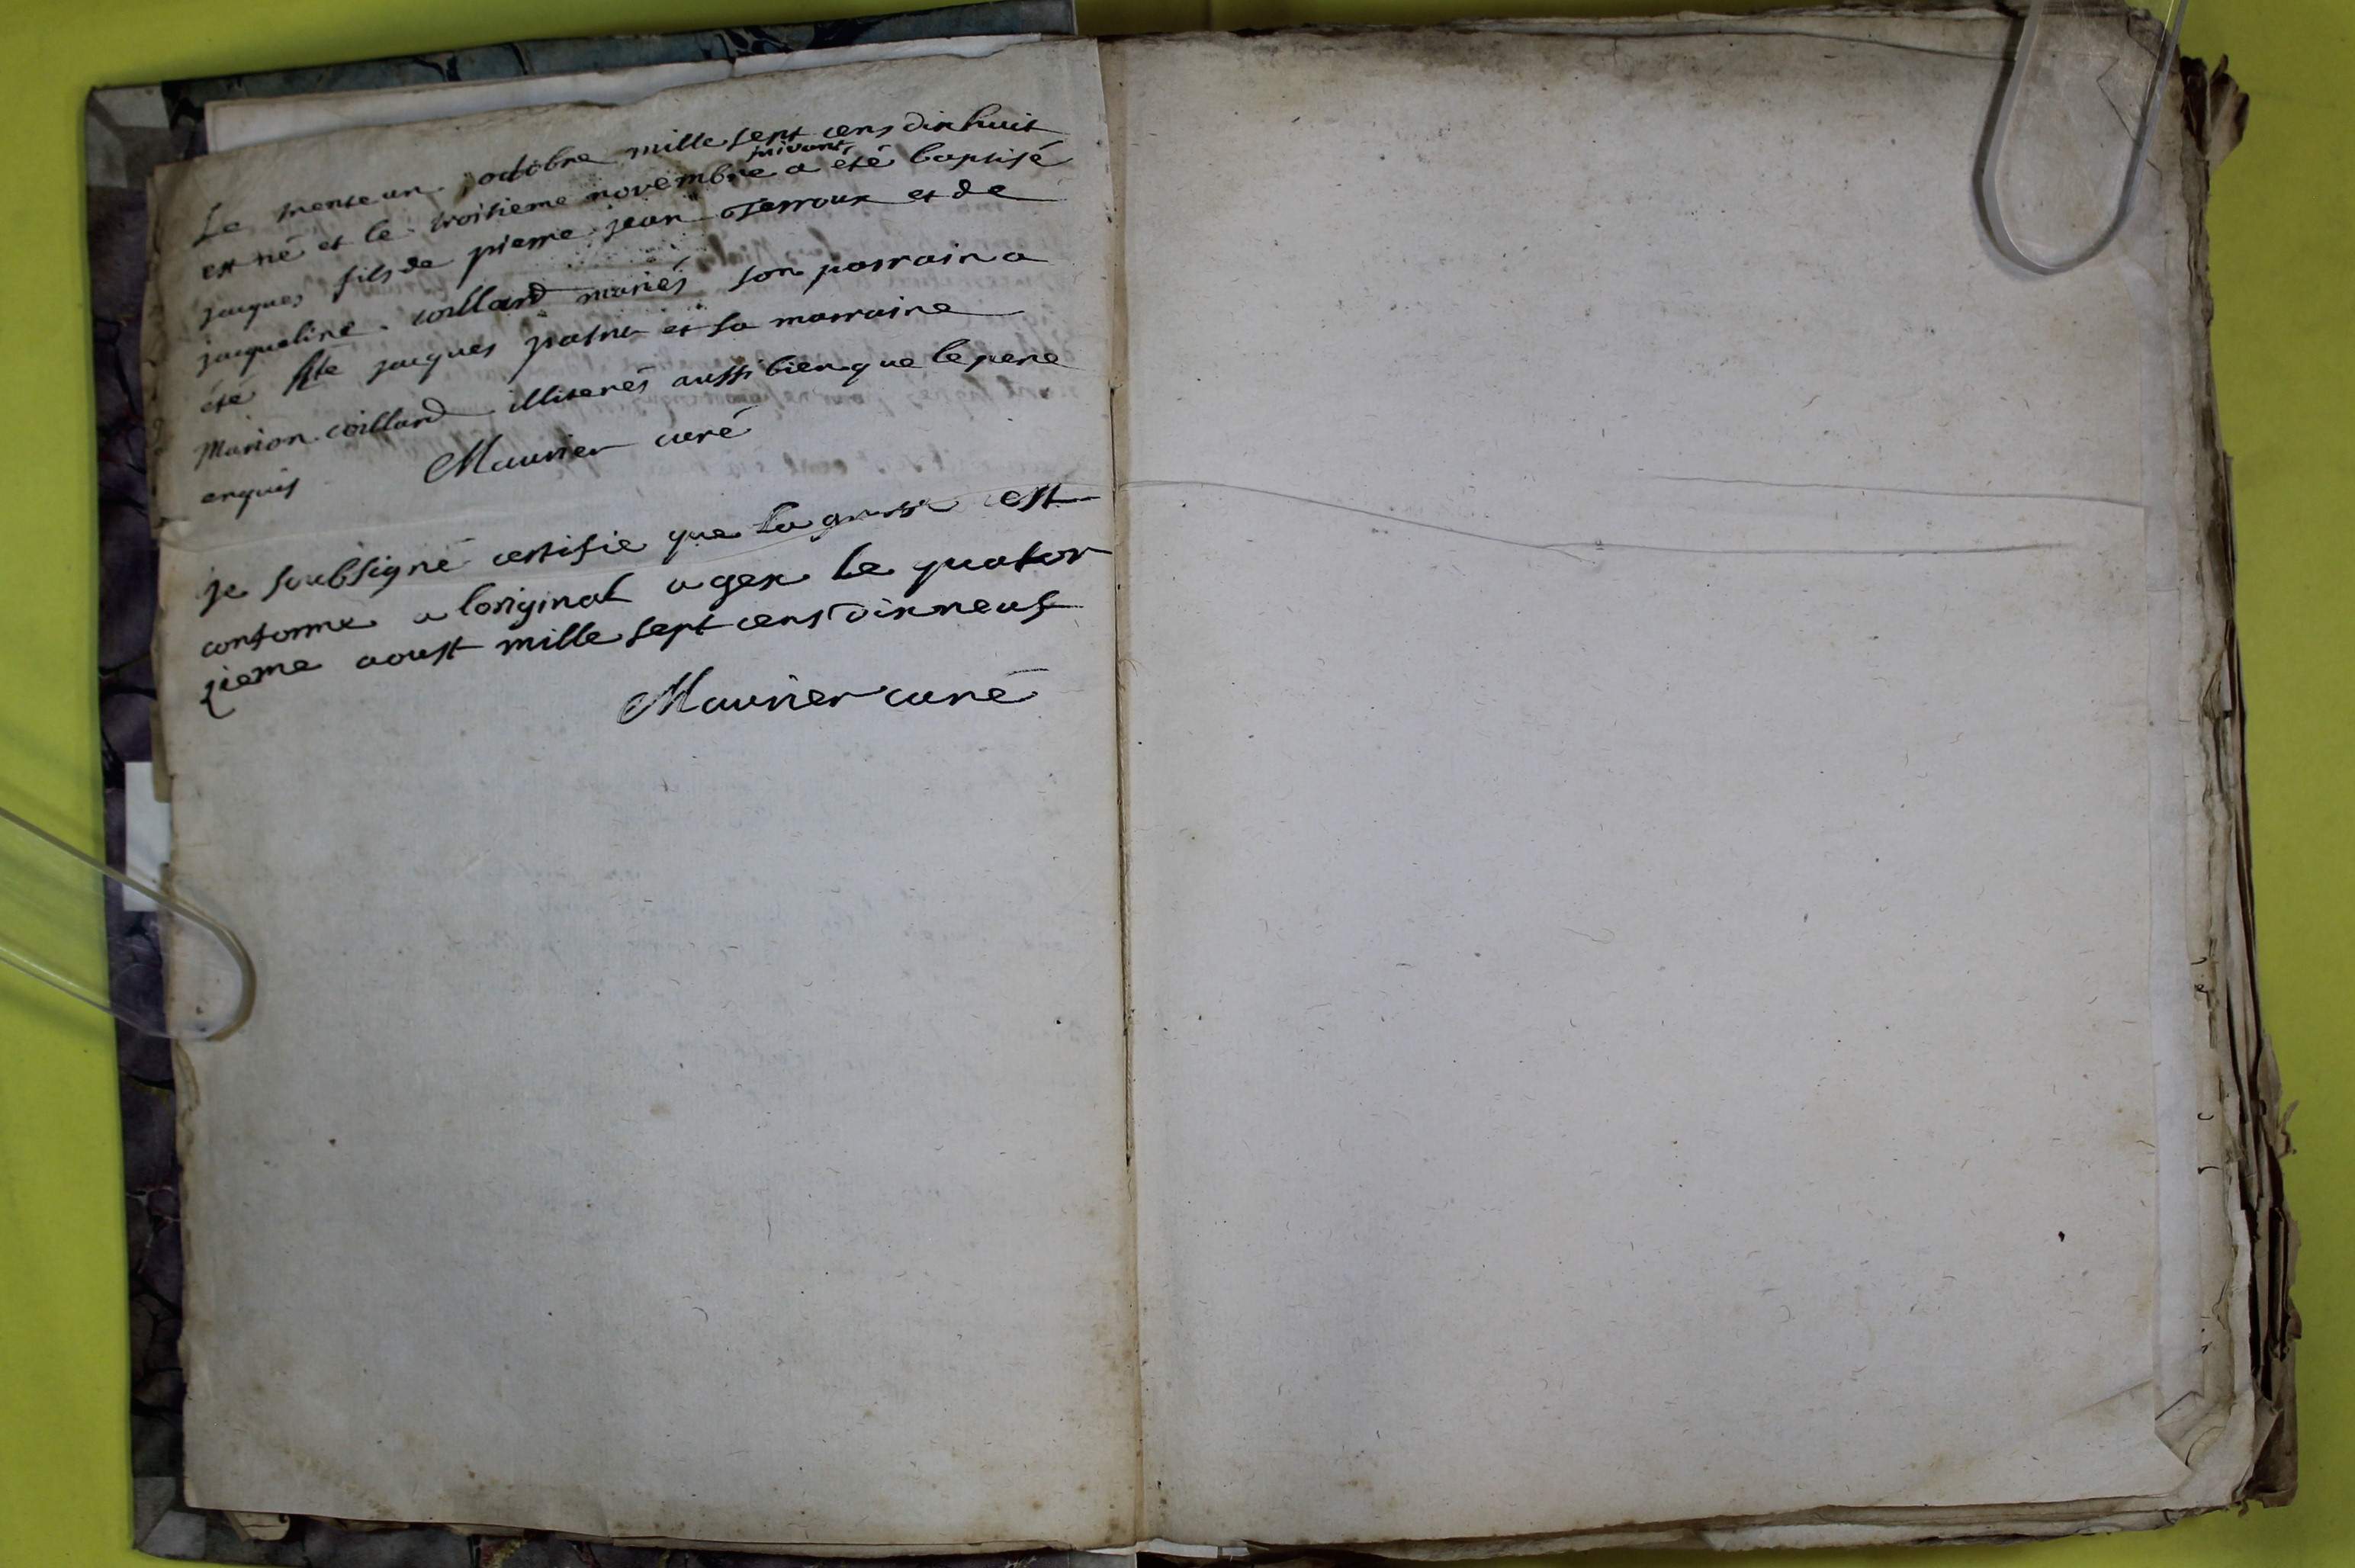 Le trente un octobre mille sept cens dix huit
est né et le troisieme novembre suivant a été baptisé
jacques fils de pierre jean et de
jacqueline coillard mariés son parrain a
été jacques et sa marraine
Marion coillard illiterés aussi bien que le pere
enquis Maurier curé
je soubsigné certifie que la grosse est
conforme a loriginal a gex le quator
zieme aoust mille sept cens dix neuf
Maurier curé